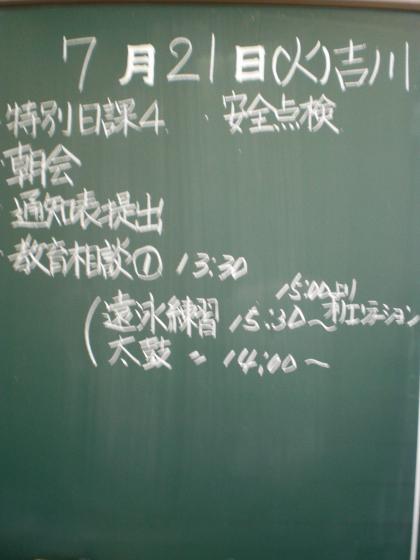 7月21日(火)吉川
特別日課4 安全点検
朝会
通知表提出
教育相談① 13:30
15:00より
オリエンテーション
(遠泳練習 15:30〜
太鼓 〃 14:00〜